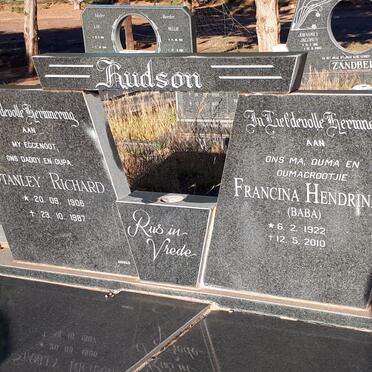 Hudson
Liefdevolle Herinnering
AAN
MY EGGENOOT
ONS DADDY EN OUPA
STANLEY RICHARD
* 20. 08. 1906
† 23. 10. 1987
Rus in
Vrede
In Liefdevolle Herinne
AAN
ONS MA, OUMA EN
OUMAGROOTJIE
FRANCINA HENDRIN
(BABA)
* 6. 2. 1922
† 12. 5. 2010
ZANDBER